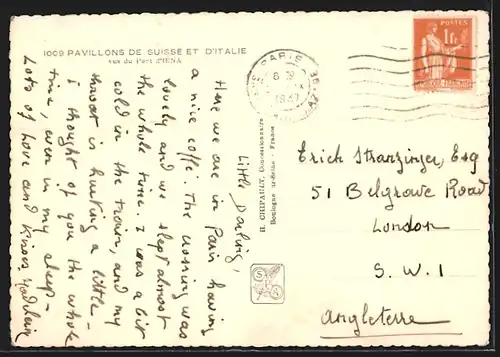 1009 PAVILLONS DE SUISSE ET D'ITALIE
vus du Pont d'IÉNA
Little Darling,
Here we are in Paris having
a nice coffee. The crossing was
lovely and we slept almost
the whole time. I was a bit
cold in the train, and my
throat is hurting a little -
I thought of you the whole
time, even in my sleep -
Lots of love and kisses
H. CHIPAULT, Concessionnaire
Boulogne s/Seine - France
PARIS
1937
POSTES
1F.
RÉPUBLIQUE FRANÇAISE
Erich Stranzinger, Esq
51 Belgrave Road
London
S.W.1
Angleterre